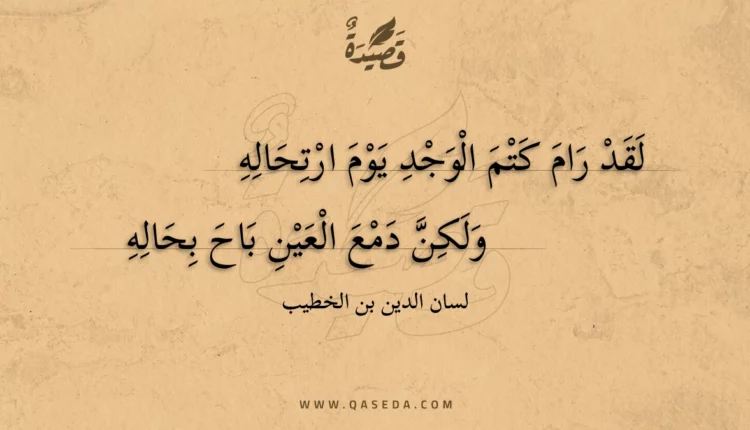 قَصِيْدَةٌ
لَقَدْ رَامَ كَتْمَ الْوَجْدِ يَوْمَ ارْتِحَالِهِ
وَلَكِنَّ دَمْعَ الْعَيْنِ بَاحَ بِحَالِهِ
لسان الدين بن الخطيب
WWW.QASEDA.COM